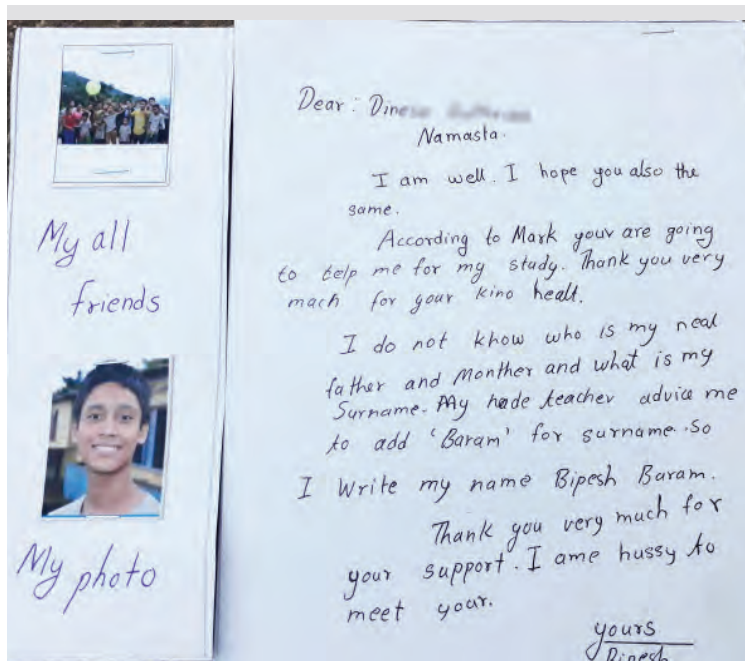 My all
friends
My photo
Dear : Dinese
Namasta.
I am well. I hope you also the
same.
According to Mark youv are going
to telp me for my study. Thank you very
mach for gour kino healt.
I do not khow who is my neal
father and Monther and what is my
Surname. My hade teacher advice me
to add 'Baram' for surname. So
I Write my name Bipesh Baram.
Thank you very much for
your support. I ame hussy to
meet your.
yours